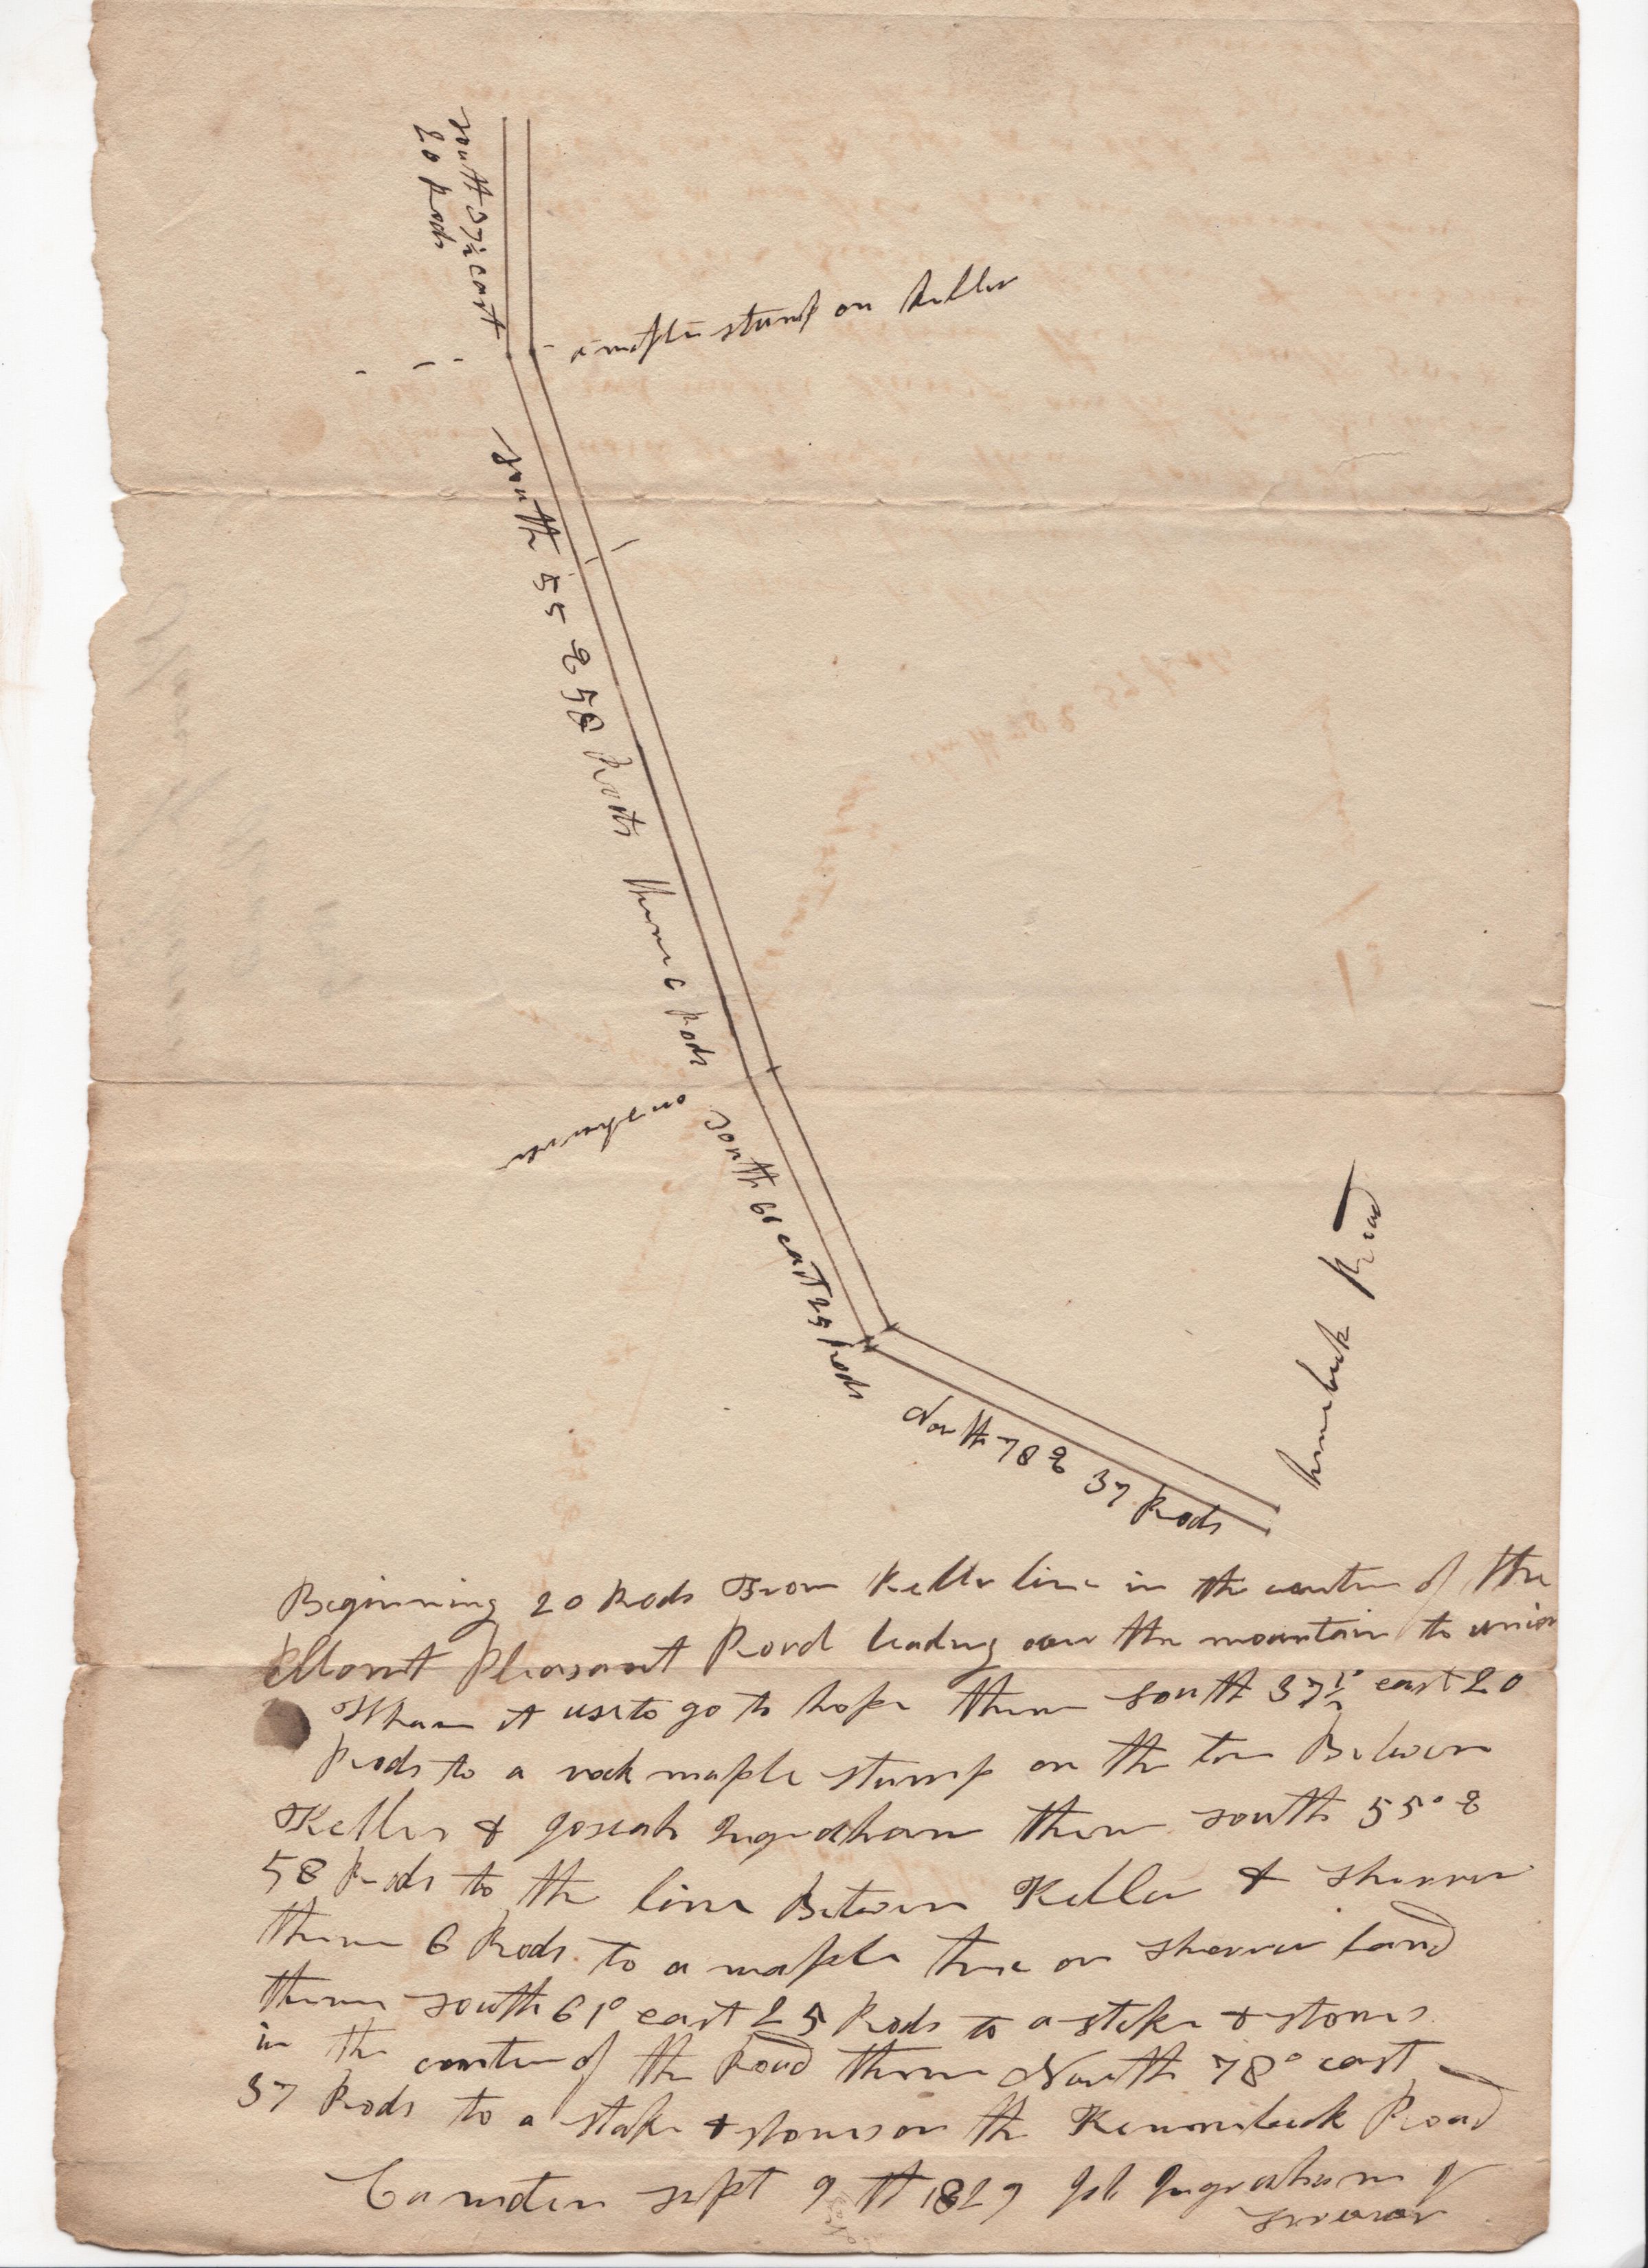 south 37½ east
20 Rods
a maple stump on Keller
south 55 E 58 Rods thenc 6 Rods
on
south 61 east 25 Rods
North 78 E 37 Rods
Kennebeck Road
Beginning 20 Rods From Keller line in the centre of the
Mount Pleasant Road leading over the mountain to union
Whare it use to go to hope thence south 37½° east 20
Rods to a rock maple stump on the line Between
Keller & Josiah Ingraham thence south 55° E
58 Rods to the line Between Keller &
thence 6 Rods to a maple tree on land
thence south 61° east 25 Rods to a stake & stones
in the centre of the Road thence North 78° east
37 Rods to a stake & stones on the Kennebeck Road
Camden sept 9th 1829 Job Ingraham